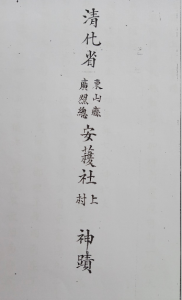 清化省東山縣廣照總安穫社上村神蹟